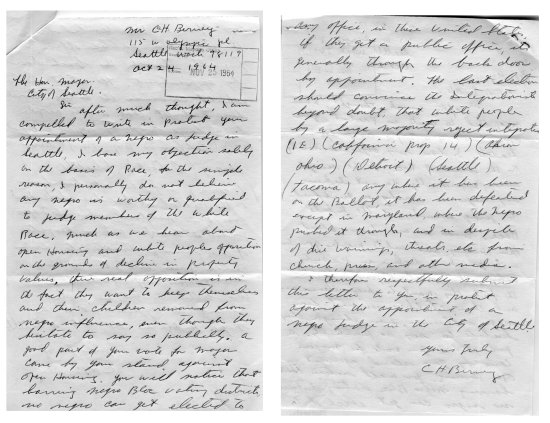 Mr C H Berney
115 w olympic pl
Seattle wash 98119
Oct 24 1964
NOV 25 1964
The Hon. Mayor
City of Seattle.
Sir after much thought, I am
compelled to write in protest your
appointment of a negro as judge in
Seattle, I base my objection solely
on the basis of Race, for the simple
reason, I personally do not believe
any negro is worthy or qualified
to judge members of the white
Race, much as we hear about
open Housing and white peoples opposition
on the grounds of decline in property
values, their real opposition is in
the fact they want to keep themselves
and their children removed from
negro influence, even though they
hesitate to say so publically. a
good part of you vote for mayor
came by your stand, against
open Housing. you will notice that
barring negro Bloc voting districts
no negro can get elected to
any office, in these United States
if they get a public office, it
generally through the back door
by appointment. The last election
should convince the Integrationists
beyond doubt, that white people
by a large majority reject integration
(IE) (California prop 14) (Akron
Ohio) (Detroit) (Seattle)
(Tacoma) any where it has been
on the Ballot it has been defeated
except in maryland where the negro
pushed it through, and in despite
of dire warnings, threats, etc from
church, press, and other media.
I therefore respectfully submit
this letter to you, in protest
against the appointment of a
negro judge in the City of Seattle
yours Truly
C H Berney